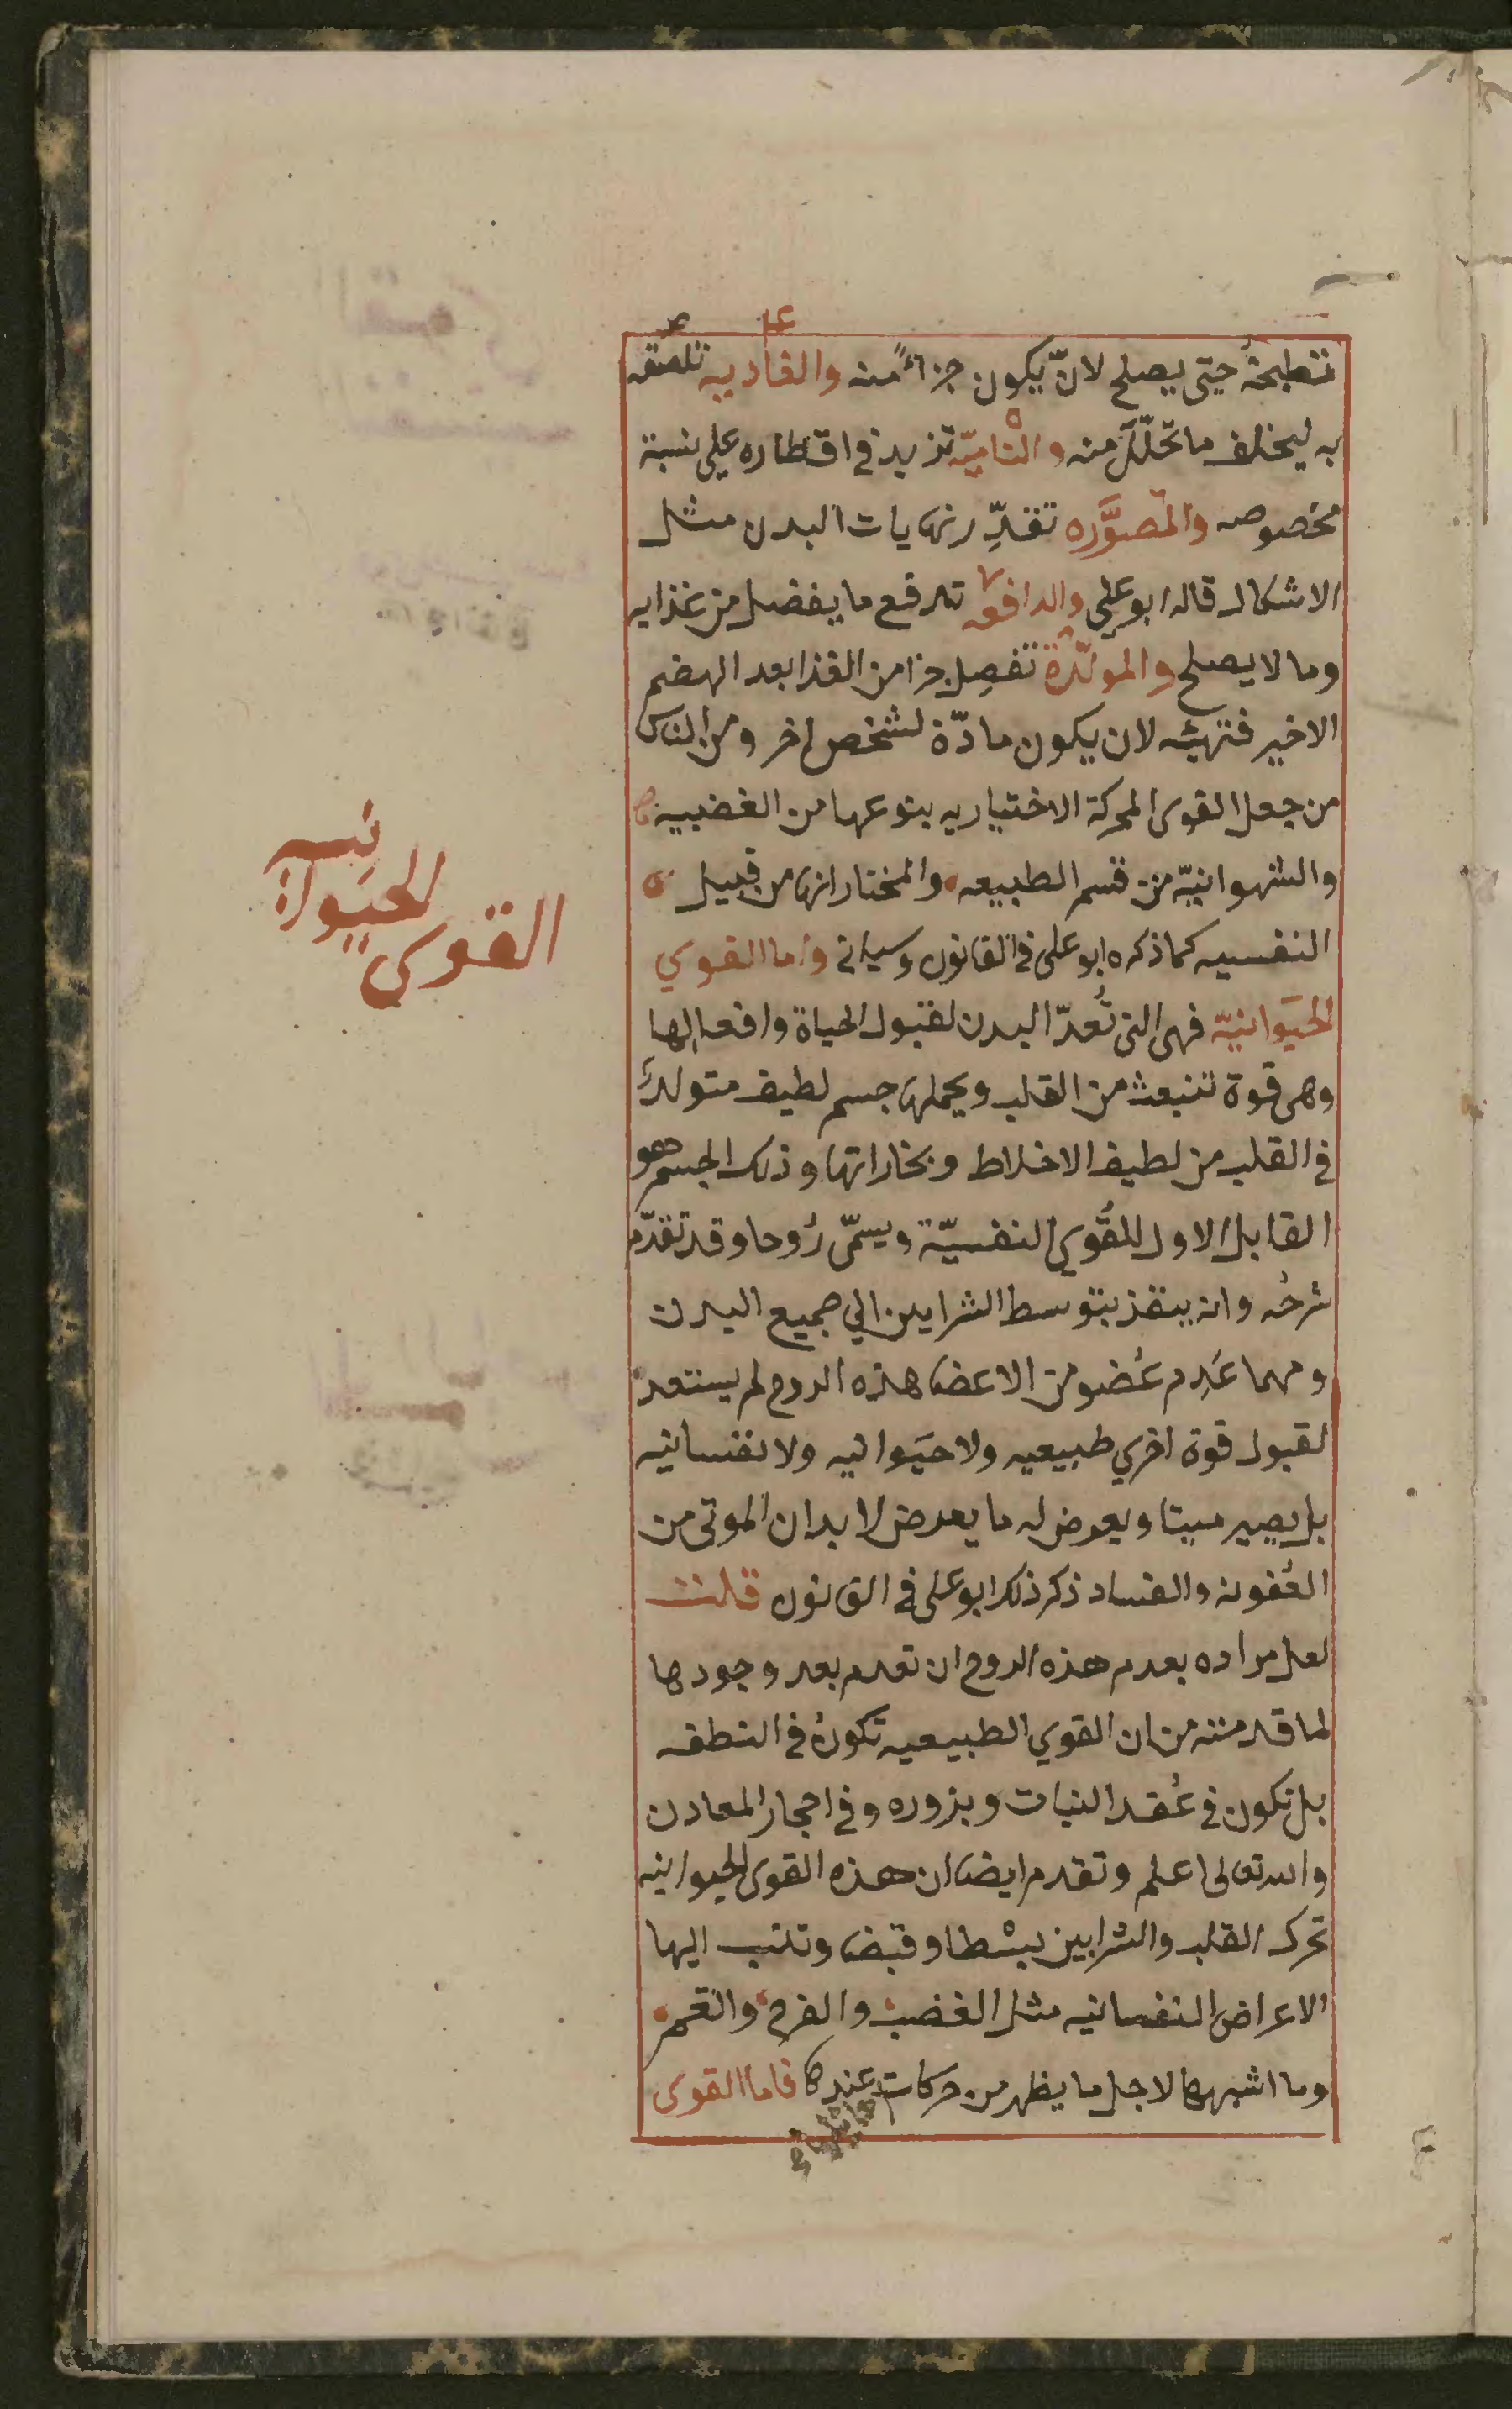 فتطبخهُ حتى يصلح لانّ يكون جزاءً منه والغاديه تلصقه
به ليخلف ما تحلّلَ منه والنّاميّه تزيد في اقطاره على نسبة
مخصوصه والمصوَّره تقدِّر نهايات البدن مثل
الاشكال قاله ابو علي والدافعه تدفع ما يفضل من غذايه
وما لا يصلح والمولّدة تفصِل جزا من الغذا بعد الهضم
الاخير فتهيئه لان يكون مادّة لشخص اخر ومن الناس
من جعل القوى المحركة الاختياريه بنوعها من الغضبية
والشهوانيّة من قسم الطبيعه والمختار انها من قبيل
النفسيه كما ذكره ابو على في القانون وسياتي واما القوي
الحيَوانيّة فهى التى تُعدّ البدن لقبول الحياة وافعالها
وهى قوة تنبعث من القلب ويحملها جسم لطيف متولد
في القلب من لطيف الاخلاط وبخاراتها وذلك الجسم هو
القابل الاول للقُوي النفسيّة ويسمّى رُوحا وقد تقدّم
شرحُه وانه ينفذ بتوسط الشرايين الي جميع البدن
ومهما عَدِم عُضو من الاعضا هذه الروح لم يستعد
لقبول قوة اخري طبيعيه ولا حيَوانيه ولا نفسانيه
بل يصير ميتا ويعرض له ما يعرض لابدان الموتى من
العُفونه والفساد ذكر ذلك ابو على في القانون قلت
لعل مراده بعدم هذه الروح ان تعدم بعد وجودها
لما قدمته من ان القوي الطبيعيه تكونُ في النطفه
بل تكون في عُقد النبات وبزوره وفي احجار المعادن
والله تعالى اعلم وتقدم ايضا ان هذه القوى الحيوانيه
تحرك القلب والشرايين بسْطا وقبضا وتنسب اليها
الاعراض النفسانيه مثل الغضب والفرح والغم
وما اشبهها لاجل ما يظهر من حركات عندها فاما القوى
القوى
الحيَوانيه